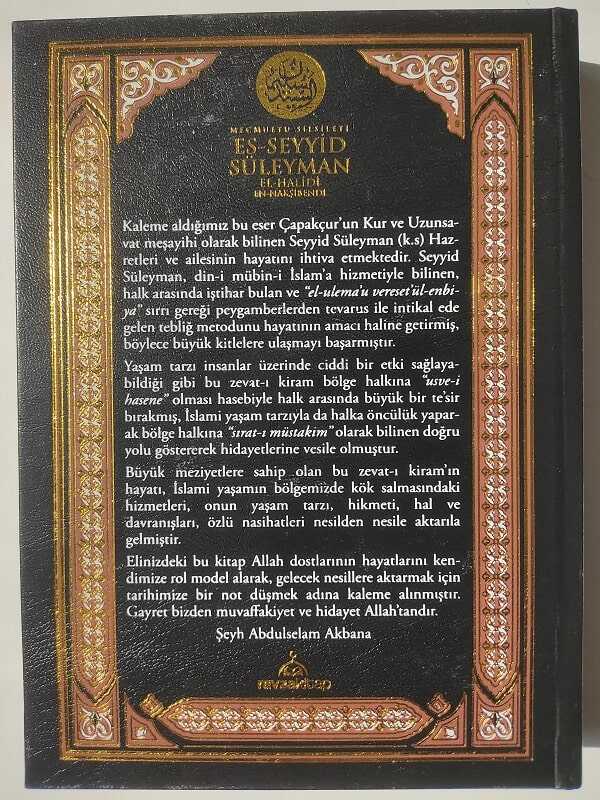 MECMUETU SILSILETI
EŞ-SEYYİD
SÜLEYMAN
EL-HALİDİ
EN-NAKŞİBENDİ
Kaleme aldığımız bu eser Çapakçur'un Kur ve Uzunsa-
vat meşayihi olarak bilinen Seyyid Süleyman (k.s) Haz-
retleri ve ailesinin hayatını ihtiva etmektedir. Seyyid
Süleyman, din-i mübin-i İslam'a hizmetiyle bilinen,
halk arasında iştihar bulan ve "el-ulema'u vereset'ül-enbi-
ya" sırrı gereği peygamberlerden tevarus ile intikal ede
gelen tebliğ metodunu hayatının amacı haline getirmiş,
böylece büyük kitlelere ulaşmayı başarmıştır.
Yaşam tarzı insanlar üzerinde ciddi bir etki sağlaya-
bildiği gibi bu zevat-ı kiram bölge halkına "usve-i
hasene" olması hasebiyle halk arasında büyük bir te'sir
bırakmış, İslami yaşam tarzıyla da halka öncülük yapar-
ak bölge halkına "sırat-ı müstakim" olarak bilinen doğru
yolu göstererek hidayetlerine vesile olmuştur.
Büyük meziyetlere sahip olan bu zevat-ı kiram'ın
hayatı, İslami yaşamın bölgemizde kök salmasındaki
hizmetleri, onun yaşam tarzı, hikmeti, hal ve
davranışları, özlü nasihatleri nesilden nesile aktarıla
gelmiştir.
Elinizdeki bu kitap Allah dostlarının hayatlarını ken-
dimize rol model alarak, gelecek nesillere aktarmak için
tarihimize bir not düşmek adına kaleme alınmıştır.
Gayret bizden muvaffakiyet ve hidayet Allah'tandır.
Şeyh Abdulselam Akbana
ravzakitap